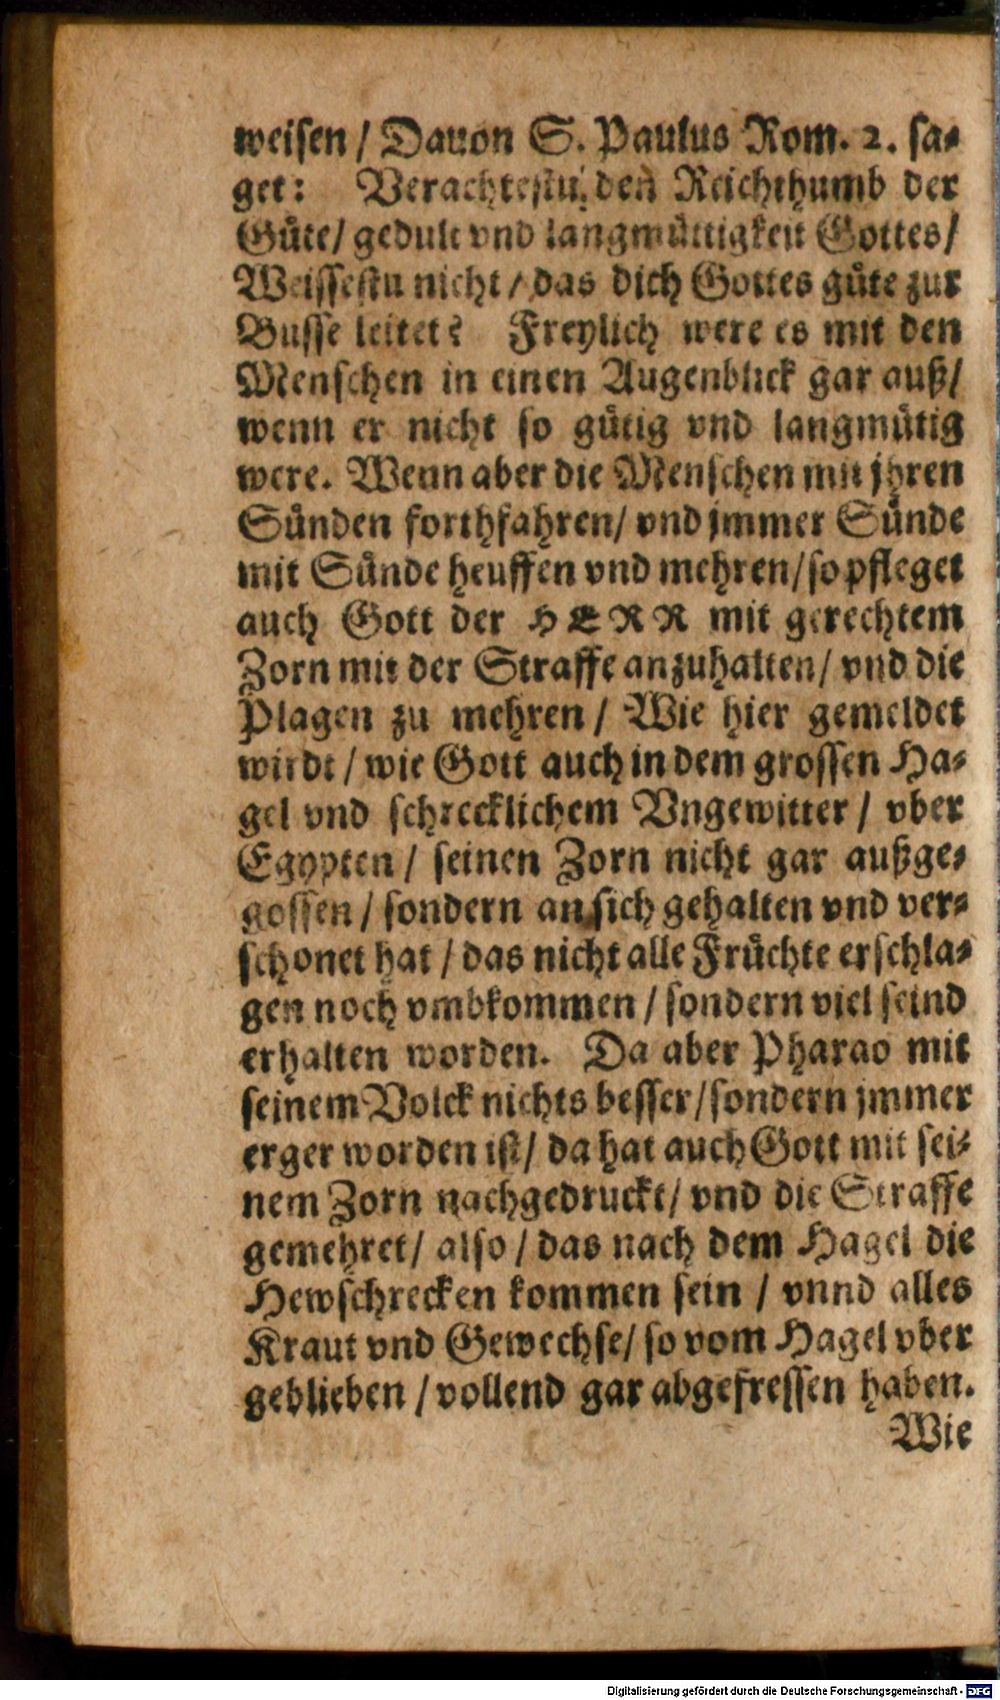 weisen / Dauon S. Paulus Rom. 2. sa-
get: Verachtestu den Reichthumb der
Gůte/ gedult vnd langmůttigkeit Gottes/
Weissestu nicht / das dich Gottes gůte zur
Busse leitet? Freylich were es mit den
Menschen in einen Augenblick gar auß/
wenn er nicht so gůtig vnd langmůtig
were. Wenn aber die Menschen mit jhren
Sůnden forthfahren/ vnd jmmer Sůnde
mit Sůnde heuffen vnd mehren/ so pfleget
auch Gott der HERR mit gerechtem
Zorn mit der Straffe anzuhalten/ vnd die
Plagen zu mehren / Wie hier gemeldet
wirdt / wie Gott auch in dem grossen Ha-
gel vnd schrecklichem Vngewitter / vber
Egypten / seinen Zorn nicht gar außge-
gossen / sondern an sich gehalten vnd ver-
schonet hat / das nicht alle Frůchte erschla-
gen noch vmbkommen / sondern viel seind
erhalten worden. Da aber Pharao mit
seinem Volck nichts besser/ sondern jmmer
erger worden ist/ da hat auch Gott mit sei-
nem Zorn nachgedruckt/ vnd die Straffe
gemehret/ also / das nach dem Hagel die
Hewschrecken kommen sein / vnnd alles
Kraut vnd Gewechse/ so vom Hagel vber
geblieben / vollend gar abgefressen haben.
Wie
Digitalisierung gefördert durch die Deutsche Forschungsgemeinschaft - DFG